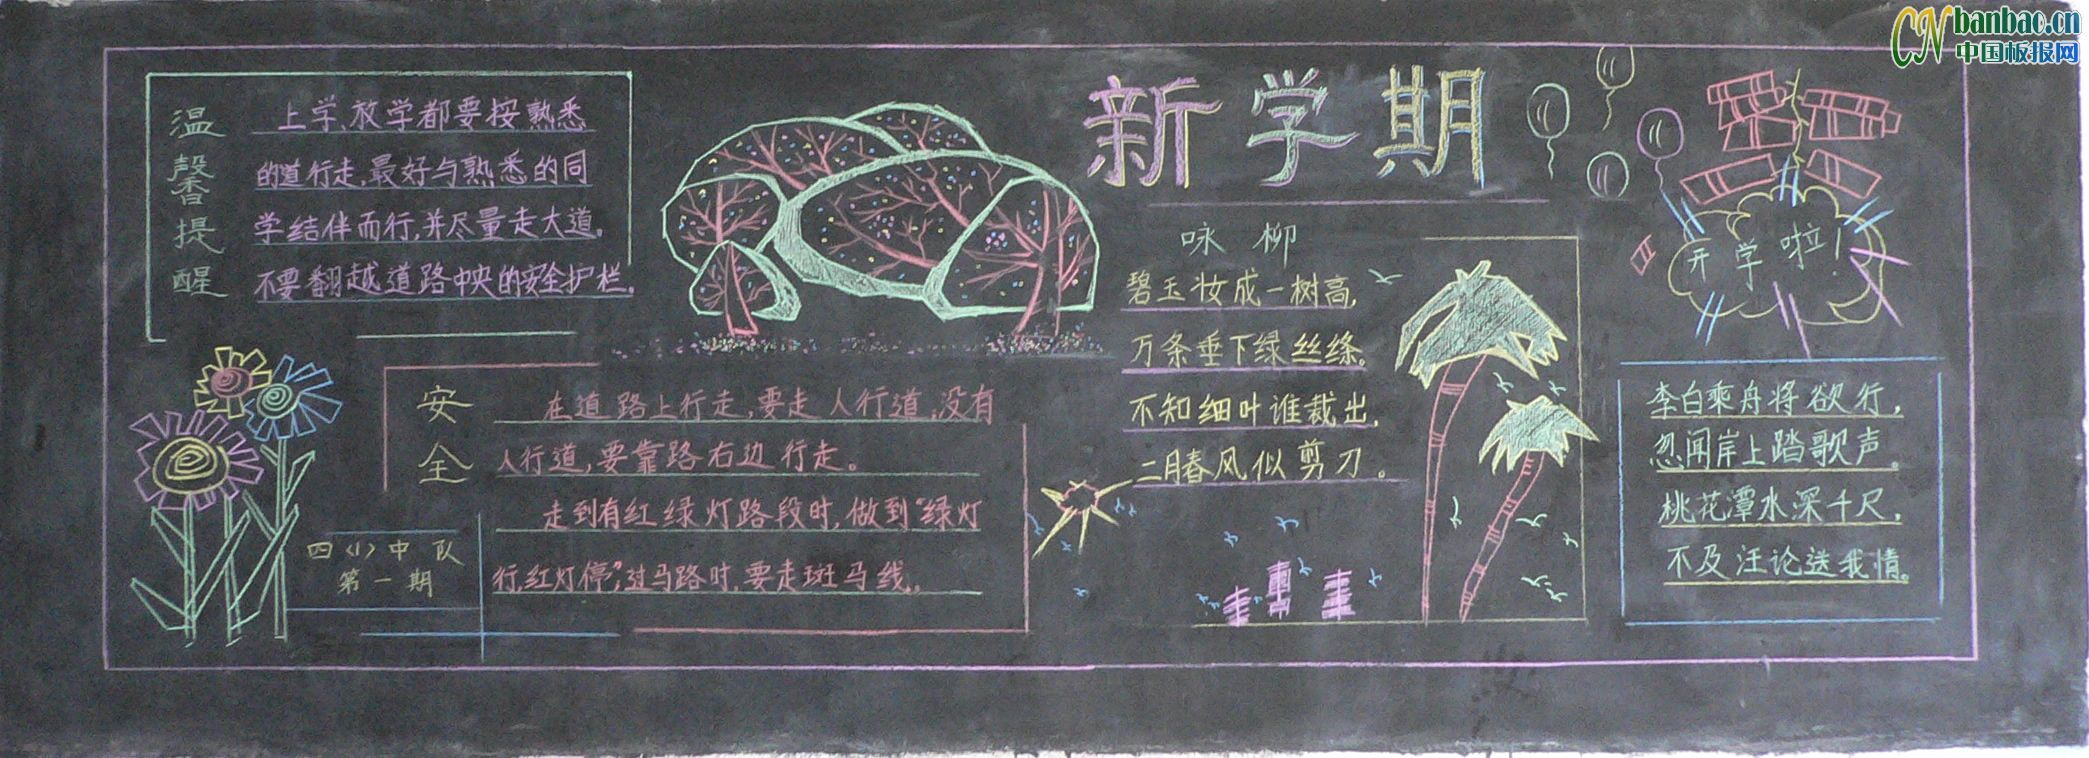 CN banbao.cn
中国板报网
温馨提醒
上学、放学都要按熟悉
的道行走,最好与熟悉的同
学结伴而行,并尽量走大道。
不要翻越道路中央的安全护栏。
安全
在道路上行走,要走人行道,没有
人行道,要靠路右边行走。
走到有红绿灯路段时,做到“绿灯
行,红灯停”,过马路时,要走斑马线。
四〈1〉中队
第一期
新学期
咏柳
碧玉妆成一树高,
万条垂下绿丝绦。
不知细叶谁裁出,
二月春风似剪刀。
开学啦!
李白乘舟将欲行,
忽闻岸上踏歌声。
桃花潭水深千尺,
不及汪论送我情。